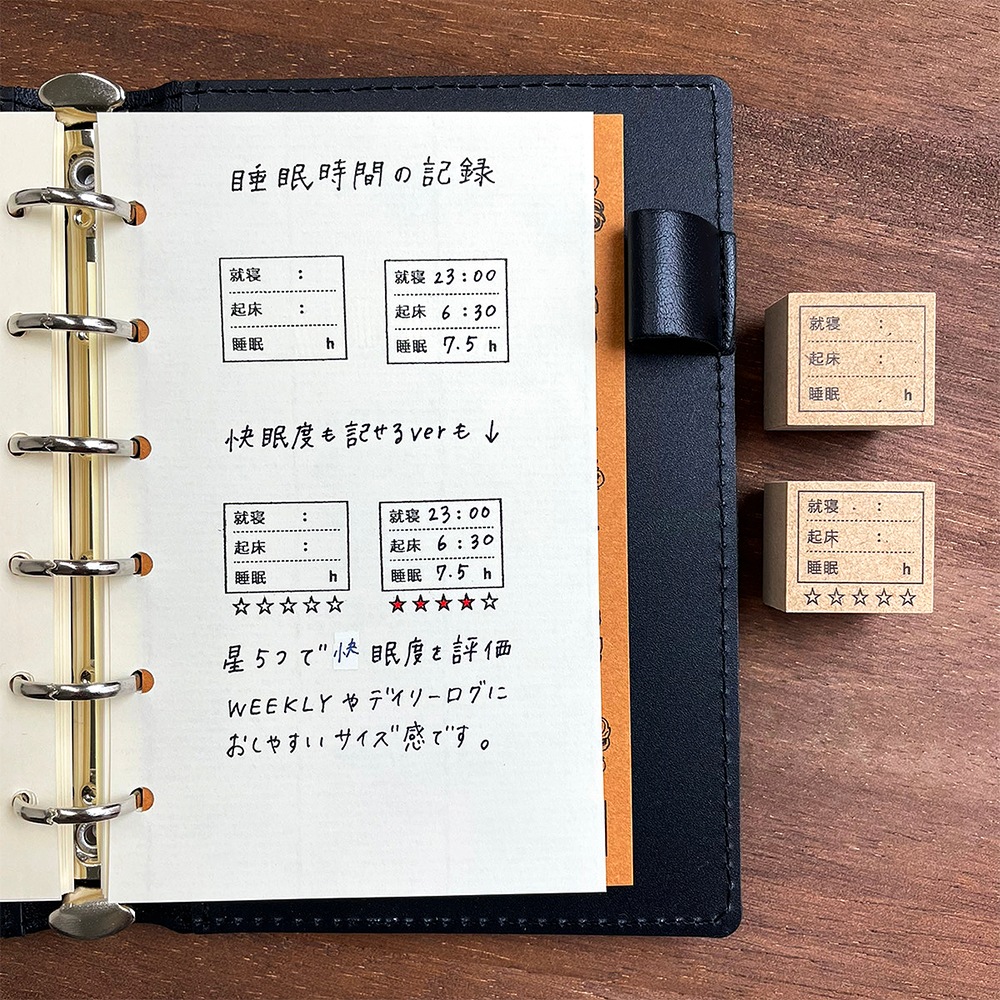 睡眠時間の記録
就寝 :
起床 :
睡眠 h
就寝 23:00
起床 6:30
睡眠 7.5 h
快眠度も記せるverも↓
就寝 :
起床 :
睡眠 h
☆☆☆☆☆
就寝 23:00
起床 6:30
睡眠 7.5 h
★★★★☆
星5つで快眠度を評価
WEEKLYやデイリーログに
おしやすいサイズ感です。
就寝 :
起床 :
睡眠 . h
就寝 :
起床 :
睡眠 h
☆☆☆☆☆